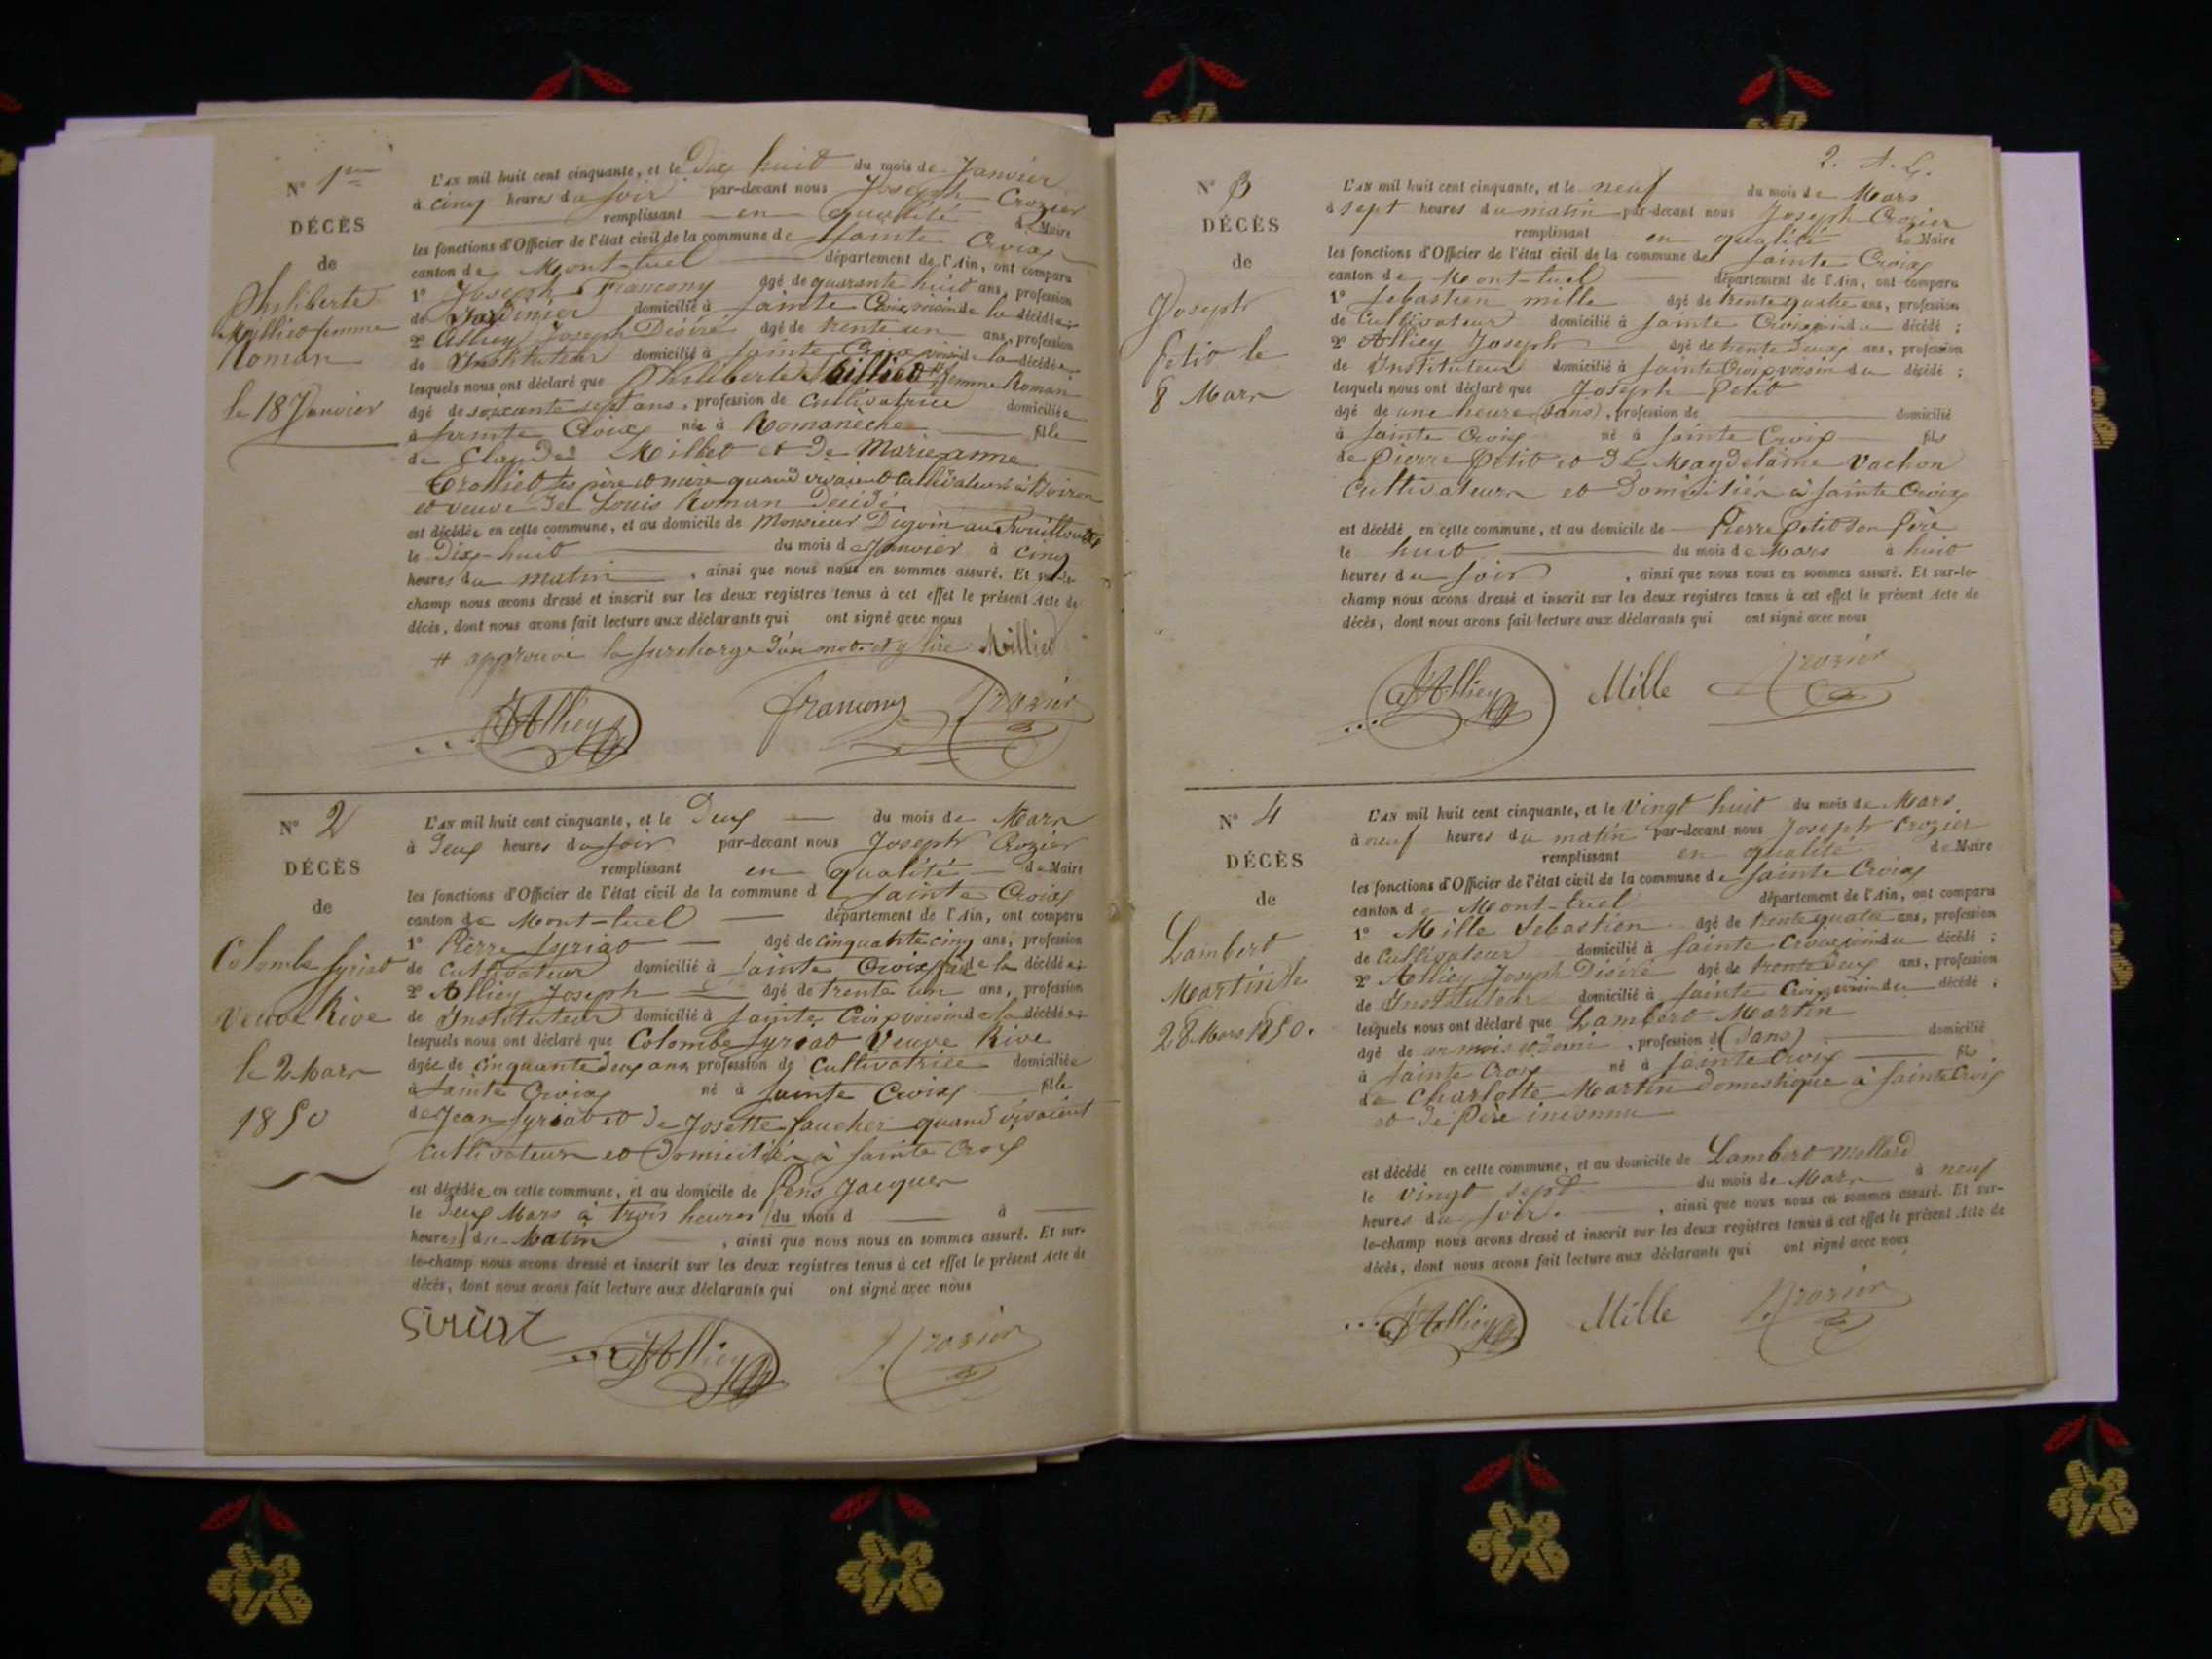 N° 1er
DÉCÈS
de
Philiberte
Milliet femme
Roman
le 18 Janvier
L'AN mil huit cent cinquante, et le Dix huit du mois de Janvier
à cinq heures du soir par-devant nous Joseph Crozier
remplissant en qualité de Maire
les fonctions d'Officier de l'état civil de la commune de Sainte Croix
canton de Mont-luel département de l'Ain, ont comparu
1° Joseph Francony âgé de quarante huit ans, profession
de Jardinier domicilié à Sainte Croix, voisin de la décédée;
2° Alliey Joseph Désiré âgé de trente un ans, profession
de Instituteur domicilié à Sainte Croix voisin de la décédée;
lesquels nous ont déclaré que Philiberte Milliet # femme Roman
âgé de soixante sept ans, profession de Cultivatrice domiciliée
à Sainte Croix née à Romanèche fille
de Claude Millet et de Marieanne
ses père et mère quand vivaient Cultivateurs à
et veuve de Louis Roman Décédé
est décédée en cette commune, et au domicile de Monsieur Digoin au
le Dix-huit du mois de Janvier à cinq
heures du matin, ainsi que nous nous en sommes assuré. Et sur-le-
champ nous avons dressé et inscrit sur les deux registres tenus à cet effet le présent Acte de
décès, dont nous avons fait lecture aux déclarants qui ont signé avec nous
# approuvé la surcharge d'un mot et y lire Milliet
JAlliey francony Crozier
N° 2
DÉCÈS
de
Colombe Syriat
Veuve Rive
le 2 Mars
1850
L'AN mil huit cent cinquante, et le Deux du mois de Mars
à Deux heures du soir par-devant nous Joseph Crozier
remplissant en qualité de Maire
les fonctions d'Officier de l'état civil de la commune d Sainte Croix
canton de Mont-luel département de l'Ain, ont comparu
1° Pierre Syriat âgé de cinquante cinq ans, profession
de Cultivateur domicilié à Sainte Croix frère de la décédée;
2° Alliey Joseph âgé de trente un ans, profession
de Instituteur domicilié à Sainte Croix voisin de la décédée;
lesquels nous ont déclaré que Colombe Syriat Veuve Rive
âgée de cinquante deux ans, profession de Cultivatrice domiciliée
à Sainte Croix né à Sainte Croix fille
de Jean Syriat et de Josette faucher quand vivaient
Cultivateurs et Domiciliés à Sainte Croix
est décédée en cette commune, et au domicile de Pens Jacques
le Deux Mars à trois heures (du mois d à
heures) du Matin, ainsi que nous nous en sommes assuré. Et sur-
le-champ nous avons dressé et inscrit sur les deux registres tenus à cet effet le présent Acte de
décès, dont nous avons fait lecture aux déclarants qui ont signé avec nous
Siriat JAlliey Crozier
2. A. L.
N° 3
DÉCÈS
de
Joseph
Petit le
8 Mars
L'AN mil huit cent cinquante, et le neuf du mois de Mars
à sept heures du matin par-devant nous Joseph Crozier
remplissant en qualité de Maire
les fonctions d'Officier de l'état civil de la commune de Sainte Croix
canton de Mont-luel département de l'Ain, ont comparu
1° Sebastien mille âgé de trente quatre ans, profession
de Cultivateur domicilié à Sainte Croix voisin du décédé;
2° Alliey Joseph âgé de trente deux ans, profession
de Instituteur domicilié à Sainte Croix voisin du décédé;
lesquels nous ont déclaré que Joseph Petit
âgé de une heure (sans), profession de domicilié
à Sainte Croix né à Sainte Croix fils
de Pierre Petit et de Magdelaine Vachon
Cultivateurs et Domiciliés à Sainte Croix
est décédé en cette commune, et au domicile de Pierre Petit son Père
le huit du mois de Mars à huit
heures du soir, ainsi que nous nous en sommes assuré. Et sur-le-
champ nous avons dressé et inscrit sur les deux registres tenus à cet effet le présent Acte de
décès, dont nous avons fait lecture aux déclarants qui ont signé avec nous
JAlliey Mille Crozier
N° 4
DÉCÈS
de
Lambert
Martin le
28 Mars 1850.
L'AN mil huit cent cinquante, et le Vingt huit du mois de Mars
à neuf heures du matin par-devant nous Joseph Crozier
remplissant en qualité de Maire
les fonctions d'Officier de l'état civil de la commune de Sainte Croix
canton de Mont-luel département de l'Ain, ont comparu
1° Mille Sebastien âgé de trente quatre ans, profession
de Cultivateur domicilié à Sainte Croix voisin du décédé;
2° Alliey Joseph Désiré âgé de trente deux ans, profession
de Instituteur domicilié à Sainte Croix voisin du décédé;
lesquels nous ont déclaré que Lambert Martin
âgé de un mois et demi, profession d (sans) domicilié
à Sainte Croix né à Sainte Croix fils
de Charlotte Martin Domestique à Sainte Croix
et de Père inconnu
est décédé en cette commune, et au domicile de Lambert Mollard
le vingt sept du mois de Mars à neuf
heures du soir, ainsi que nous nous en sommes assuré. Et sur-
le-champ nous avons dressé et inscrit sur les deux registres tenus à cet effet le présent Acte de
décès, dont nous avons fait lecture aux déclarants qui ont signé avec nous
JAlliey Mille Crozier